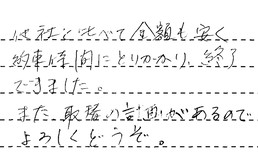 他社に比べて金額も安く
約束時間にとりかかり、終了
できました。
また取替の計画があるので
よろしくどうぞ。